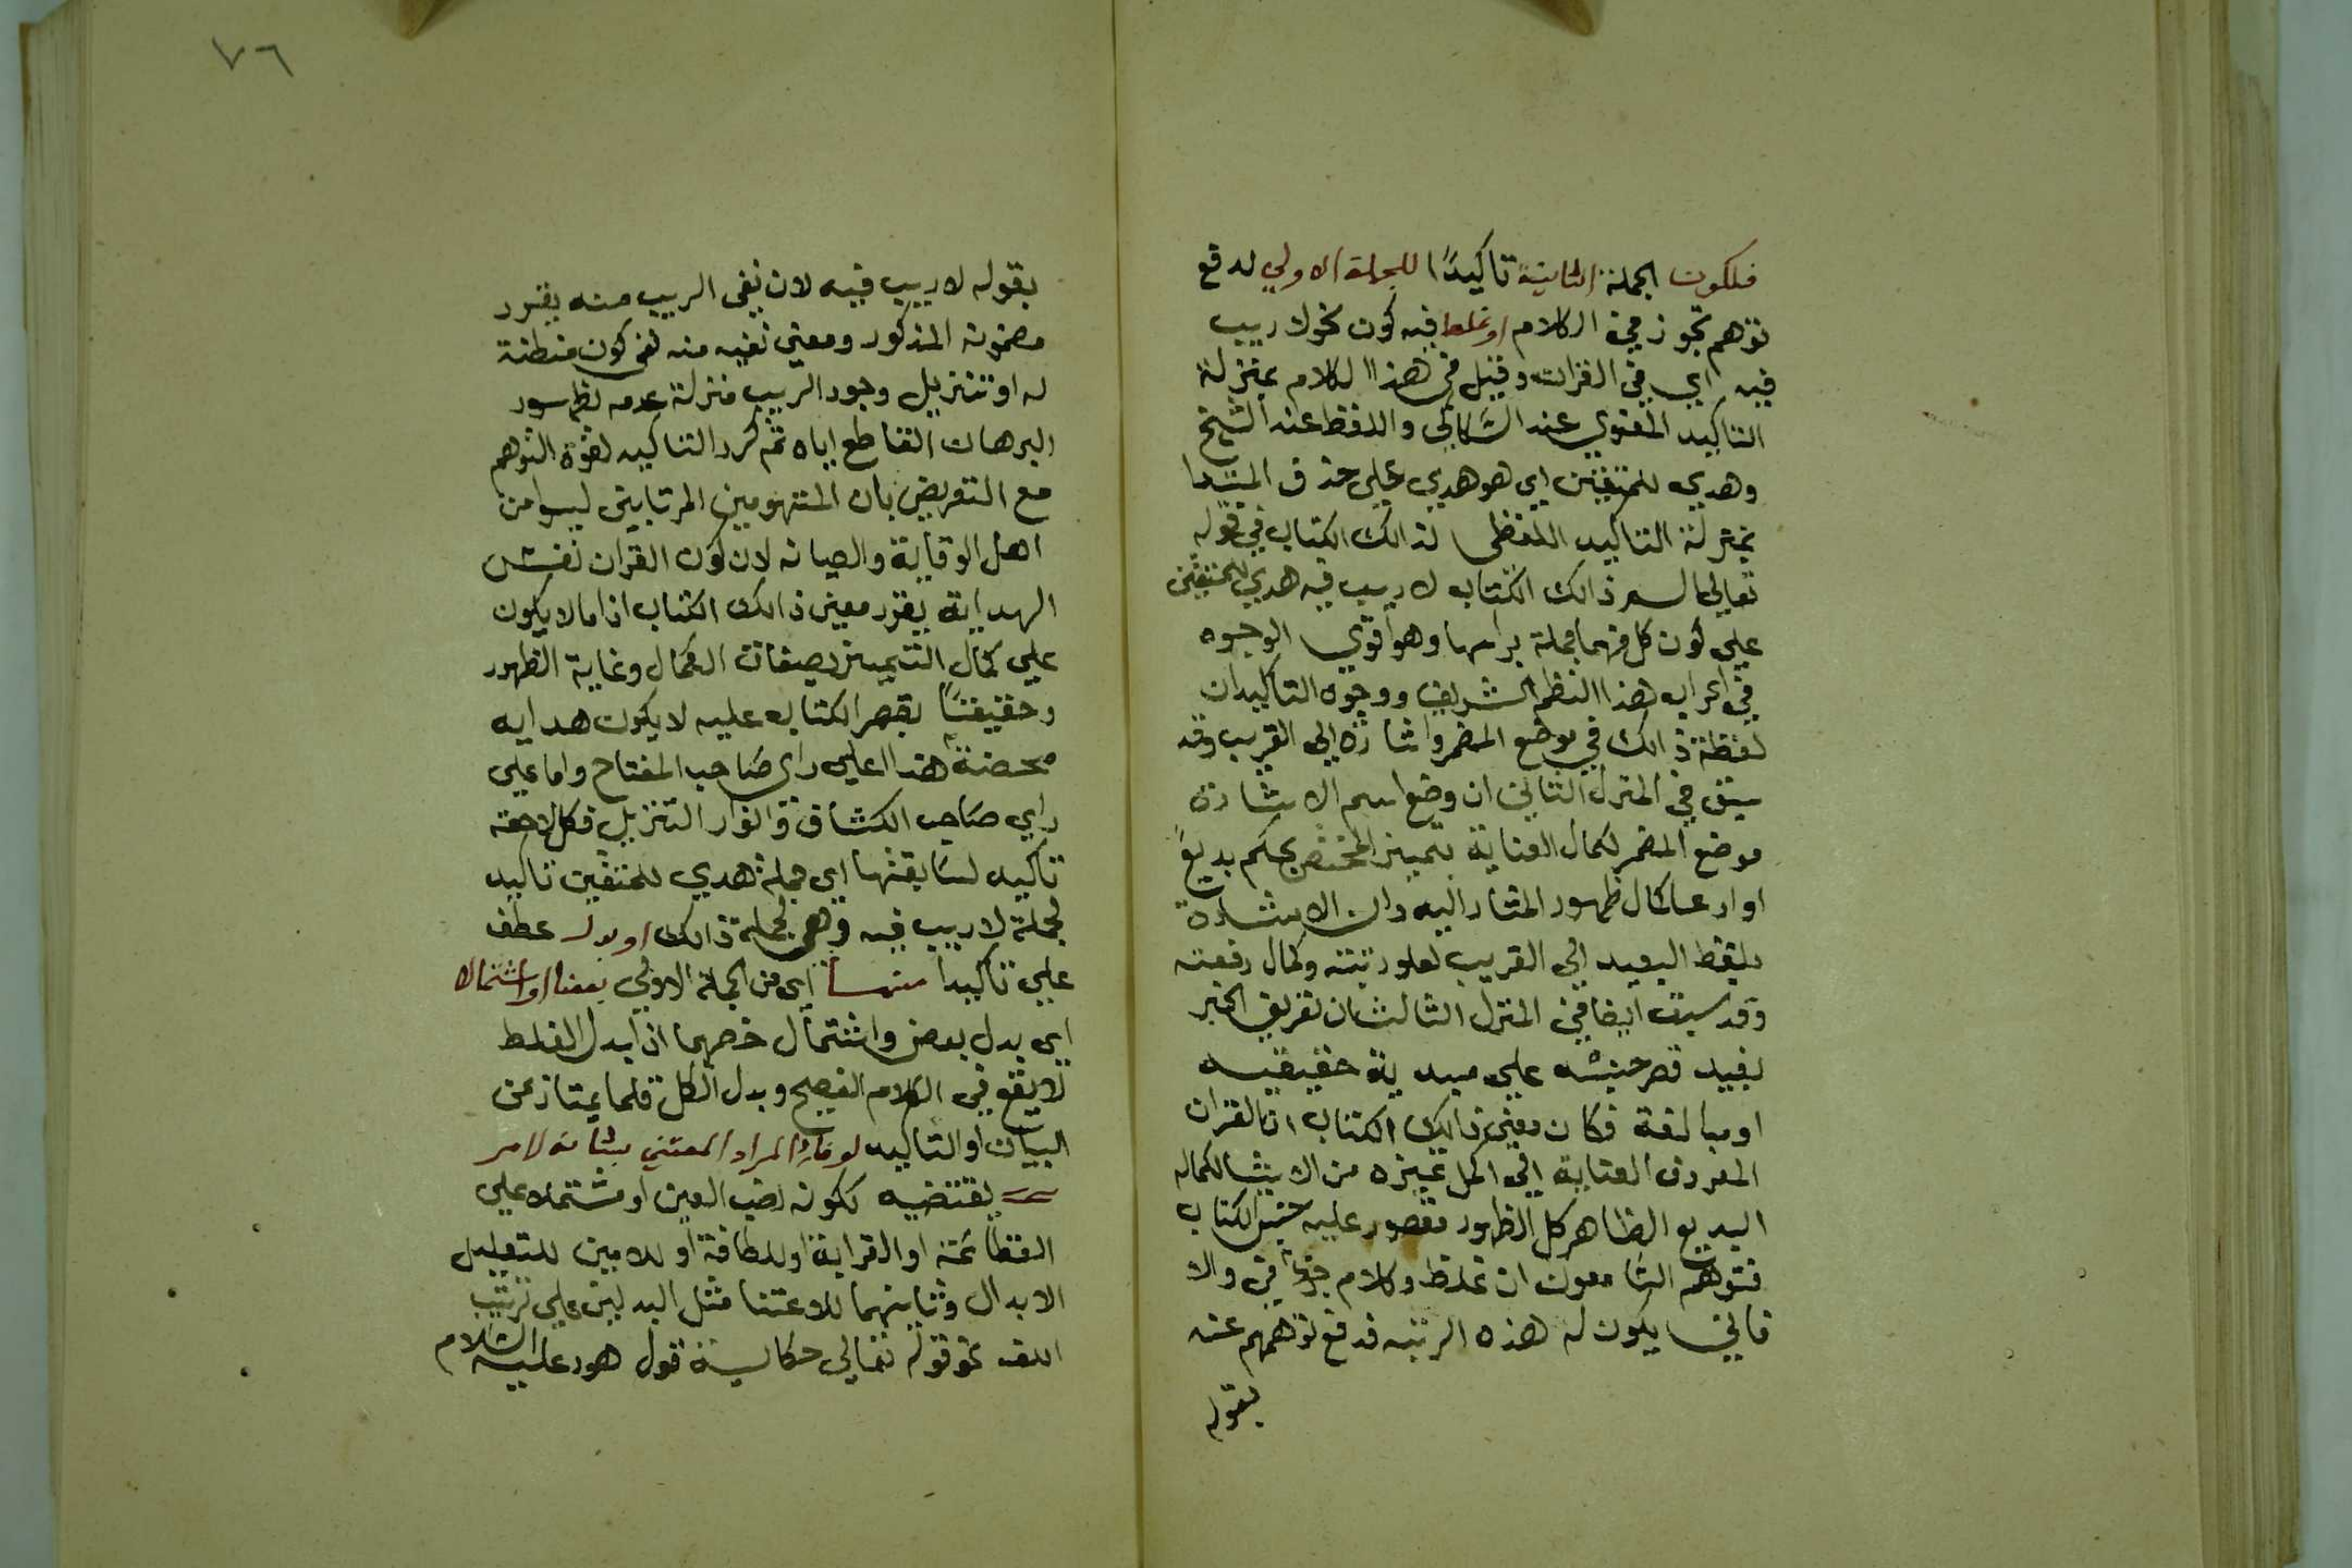 فلكون الجملة الثانية تاكيدًا للجملة الاولي لدفع
توهم تجوز في الكلام او غلط فيه كون نحو لا ريب
فيه اي في القران وقيل في هذا الكلام بمنزلة
التاكيد المعنوي عند السكاكي واللفظ عند الشيخ
وهدي للمتقين اي هو هدي علي حذف المبتدا
بمنزلة التاكيد اللفظي لذالك الكتاب في قوله
تعالي الم ذالك الكتاب لا ريب فيه هدي للمتقين
علي كون كل منهما جملة براسها وهو اقوي الوجوه
في اعراب هذا النظم الشريف ووجوه التاكيدان
لفظة ذالك في موضع المضمر واشارة الي القريب وقد
سبق في المنزل الثاني ان وضع اسم الاشارة
موضع المضمر لكمال العناية بتمييز المختص بحكم بديع
او ادعا كمال ظهور المشار اليه وان الاشارة
بلفظ البعيد الي القريب لعلو رتبته وكمال رفعته
وقد سبق ايضا في المنزل الثالث ان تعريف الخبر
يفيد قصر جنسه علي مبديه حقيقيه
او مبالغة فكان معني ذالك الكتاب ان القران
المعروف العناية الي اكمل تميزه من الاشيا لكماله
البديع الظاهر كل الظهور مقصور عليه جنس الكتاب
فتوهم السامعون ان غلط وكلام جزافي والا
فاني يكون له هذه الرتبه فدفع توهمهم عنه
بقوله
٧٦
بقوله لا ريب فيه لان نفي الريب منه يقرر
مضمونه المذكور ومعني نفيه منه نفي كون مظنة
له او تنزيل وجود الريب منزلة عدمه لظهور
البرهان القاطع اياه ثم كرر التاكيد لقوة التوهم
مع التعريض بان المتوهمين المرتابين ليسوا من
اهل الوقاية والصيانه لان كون القران نفس
الهداية يقرر معني ذالك الكتاب اذ ما لا يكون
علي كمال التمييز بصفات الكمال وغاية الظهور
وحقيقتًا بقصر الكتاب عليه لا يكون هدايه
محضة هذا علي راي صاحب المفتاح واما علي
راي صاحب الكشاف وانوار التنزيل فكل لاحقه
تاكيد لسابقتها اي جملة هدي للمتقين تاكيد
لجملة لا ريب فيه وهي لجملة ذالك او بدلا عطف
علي تاكيدا منها اي من الجملة الاولي بعضا او اشتمالا
اي بدل بعض واشتمال خصهما اذ بدل الغلط
لا يقع في الكلام الفصيح وبدل الكل قلما يمتاز عن
البيان او التاكيد لوفائه المراد المعتني بشانه لامر
يقتضيه ككونه نصب العين او مشتملا علي
الفظاعة او الغرابة او اللطافة او للامين للتعليل
الابدال وثانيهما للاعتنا مثل البدلين علي ترتيب
اللف نحو قوله تعالي حكاية قول هود عليه السلام